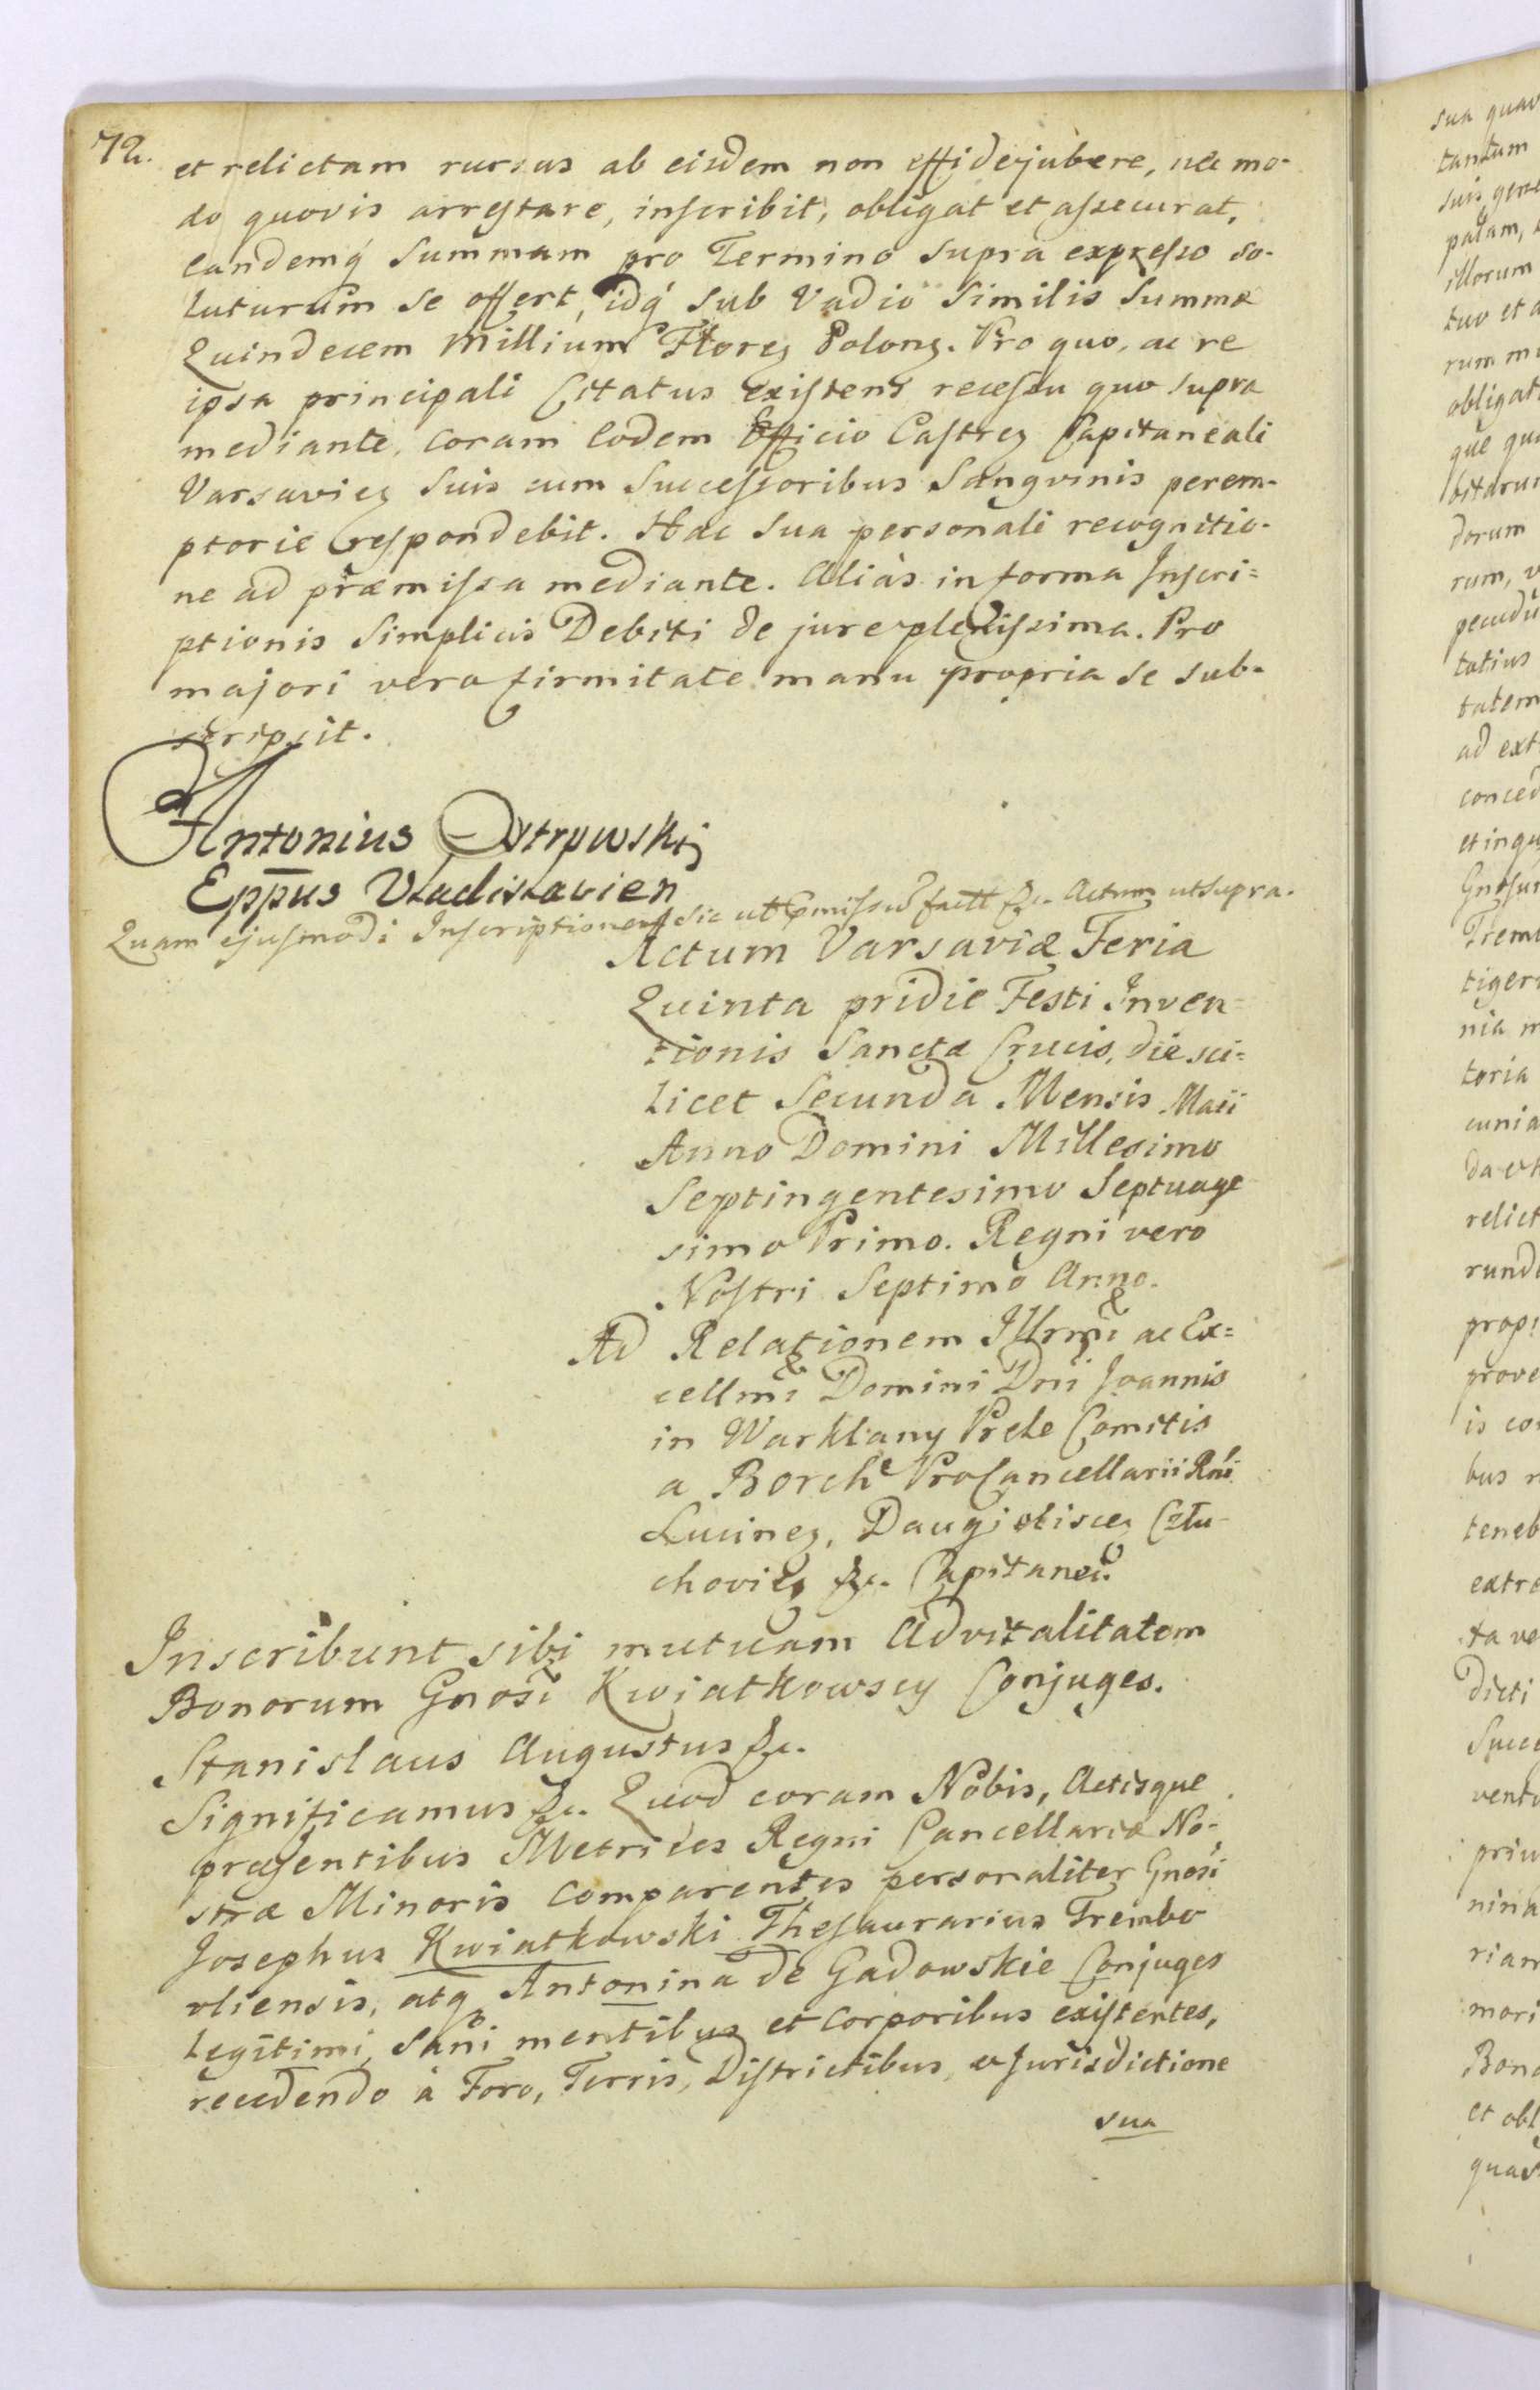 72.
et relictam rursus ab eisdem non effidejubere, nec mo-
do quovis arrestare, inscribit, obligat et assecurat,
eandemq́ Summam pro Termino supra expresso so-
luturum se offert, idq́ sub Vadio similis Summæ
Quindecem Millium Floreꝫ Poloneꝫ. Pro quo, ac re
ipsa principali Citatus existens recessu quo supra
mediante, coram eodem Officio Castreꝫ Capitaneali
Varsavieꝫ suis cum Successoribus Sangvinis perem-
ptorie respondebit. Hac sua personali recognitio-
ne ad præmissa mediante. Aliàs in forma Inscri=
ptionis Simplicis Debiti de jure plenissima. Pro
majori vero firmitate manu propria se sub-
scripsit.
Antonius Ostrowski
Epp̄us Vladislavien
Quam ejusmodi Inscriptionem sic ut factt &c. Actum ut supra.
Actum Varsaviæ Feria
Quinta pridie Festi Inven=
tionis Sanctæ Crucis, die sci=
licet Secunda Mensis Maii
Anno Domini Millesimo
Septingentesimo Septuage
simo Primo. Regni vero
Nostri Septimo Anno.
Ad Relationem Illrmi ac Ex=
cellmi Domini Dni Joannis
in Warklany Prele Comitis
a Borch ProCancellarii Rni
Lucineꝫ, Człu-
chovieꝫ &c. Capitanei.
Inscribunt sibi mutuam Advitalitatem
Bonorum Gnosi Kwiatkowscy Conjuges.
Stanislaus Augustus &c.
Significamus &c. Quod coram Nobis, Actisque
præsentibus Metrices Regni Cancellariæ No-
stræ Minoris comparentes personaliter Gnosi
Josephus Kwiatkowski Thesaurarius Trembo
vliensis, atq Antonina de Gadowskie Conjuges
legitimi, sani mentibus et corporibus existentes,
recedendo à Foro, Terris, Districtibus, et Jurisdictione
sua
sua quav
tantum
suis gene
palam,
illorum
tuo et a
rum m
obligat
que qu
bitaru
dorum
rum, v
pecudu
totius
tatem
ad ext
conced
et inqu
Gnosu
Tremb
tiger
nia m
toria
cunia
da et
relict
rund
prop
prove
is co
bus
teneb
extra
ta ve
dicti
Succe
vent
priu
nina
rian
mori
Bono
et obl
quas